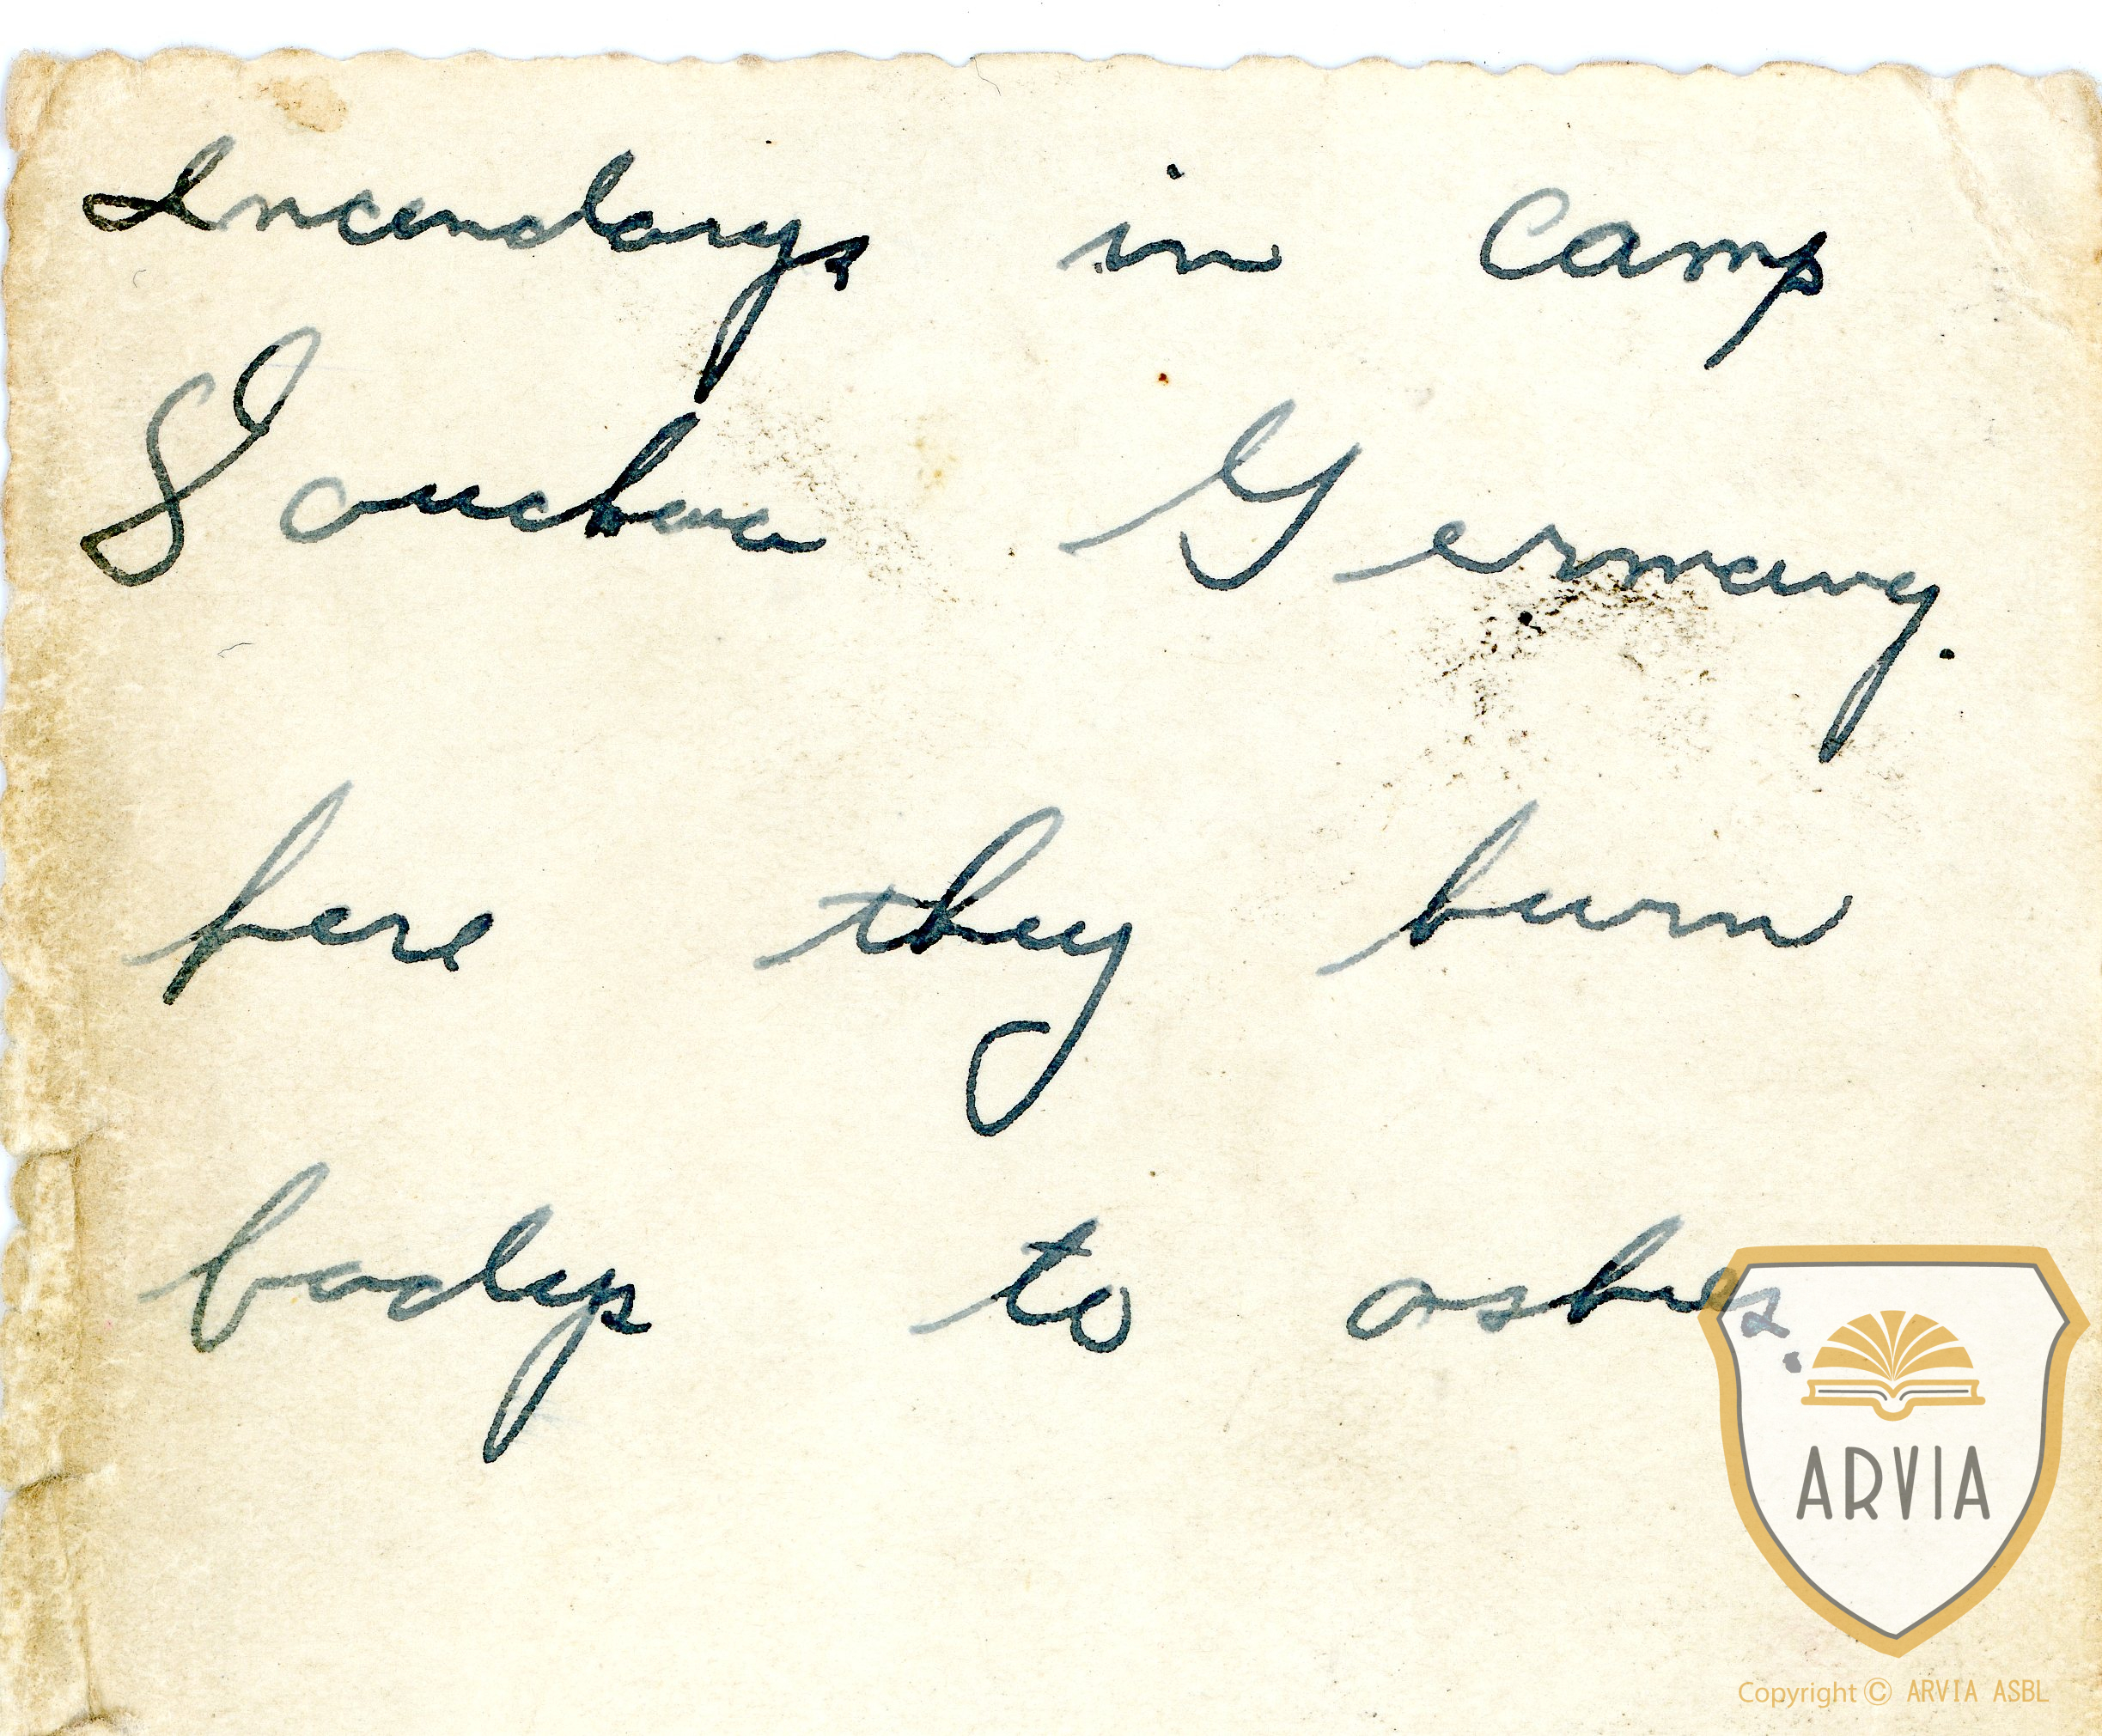 Incendarys in Camp
Dauchua Germany.
here they burn
bodys to ashes.
ARVIA
Copyright © ARVIA ASBL